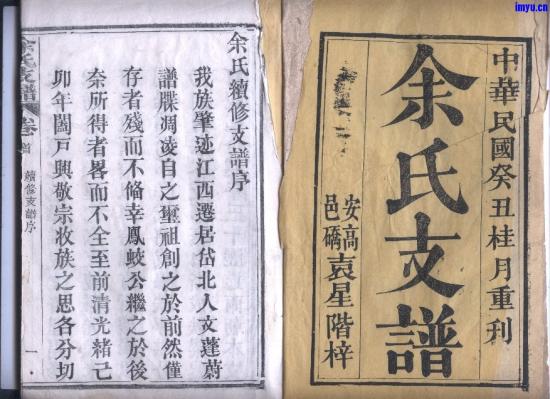 imyu.cn
中華民國癸丑桂月重刊
余氏支譜
安高
邑礄
袁星階梓
余氏續修支譜序
我族肇迹江西遷居岱北人文蓬蔚
譜牒凋凌自之璽祖創之於前然僅
存者殘而不俻幸鳳蛟公繼之於後
奈所得者畧而不全至前清光緒己
卯年闔戸興敬宗收族之思各分切
余氏支譜
卷首
續修支譜序
一